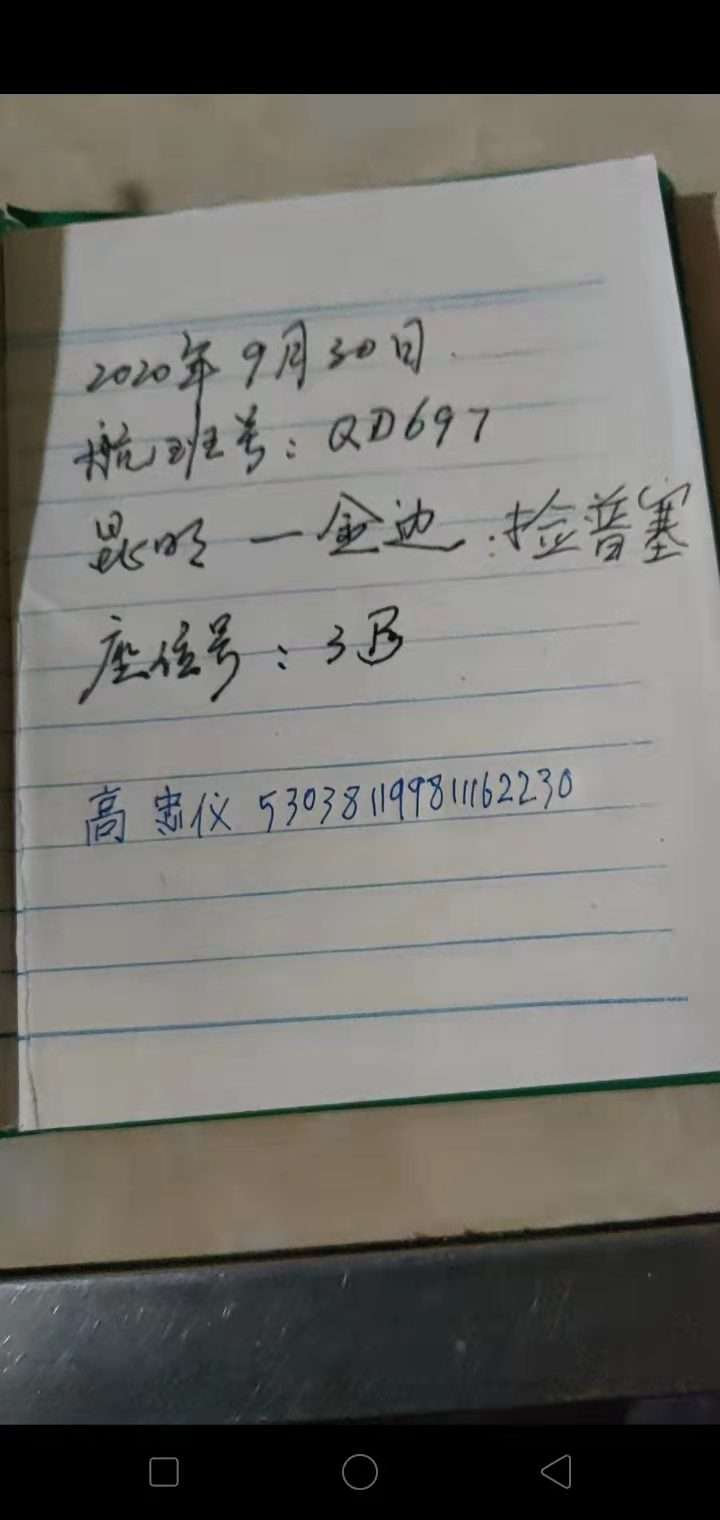 2020年9月30日.
航班号：QD697
昆明一金边.捡普寨
座位号：3B
高忠仪 530381199811162230